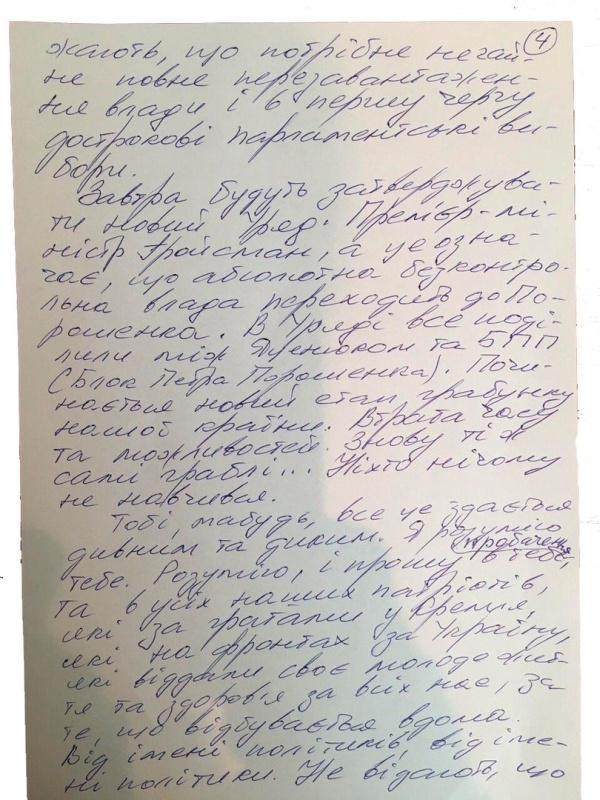 4
жають, що потрібне негай-
не повне перезавантажен-
ня влади і в першу чергу
дострокові парламентські ви-
бори.
Завтра будуть затверджува-
ти новий Уряд. Прем'єр-мі-
ністр Гройсман, а це озна-
чає, що абсолютна безконтро-
льна влада переходить до По-
рошенка. В Уряді все поді-
лили між Яценюком та БПП
(Блок Петра Порошенка). Почи-
нається новий етап грабунку
нашої країни. Втрата часу
та можливостей. Знову ті ж
самі граблі... Ніхто нічому
не навчився.
Тобі, мабудь, все це здається
дивним та диким. Я розумію
тебе. Розумію, і прошу пробачення в тебе,
та в усіх наших патріотів,
які за гратами у Кремля,
які на фронтах за Україну,
які віддали своє молоде жит-
тя та здоров'я за всіх нас, за
те, що відбувається вдома.
Від імені політиків, від іме-
ні політики. Не відають, що